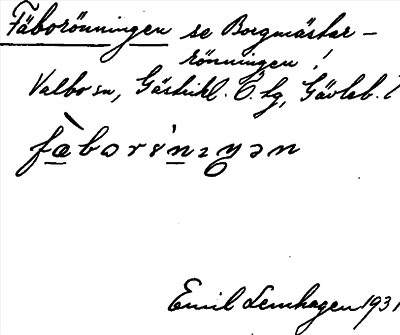 Fäborönningen se Borgmästar-
rönningen!
Valbo sn, Gästrikl. Ö. tg, Gävleb. l
Emil Lenhagen 1931